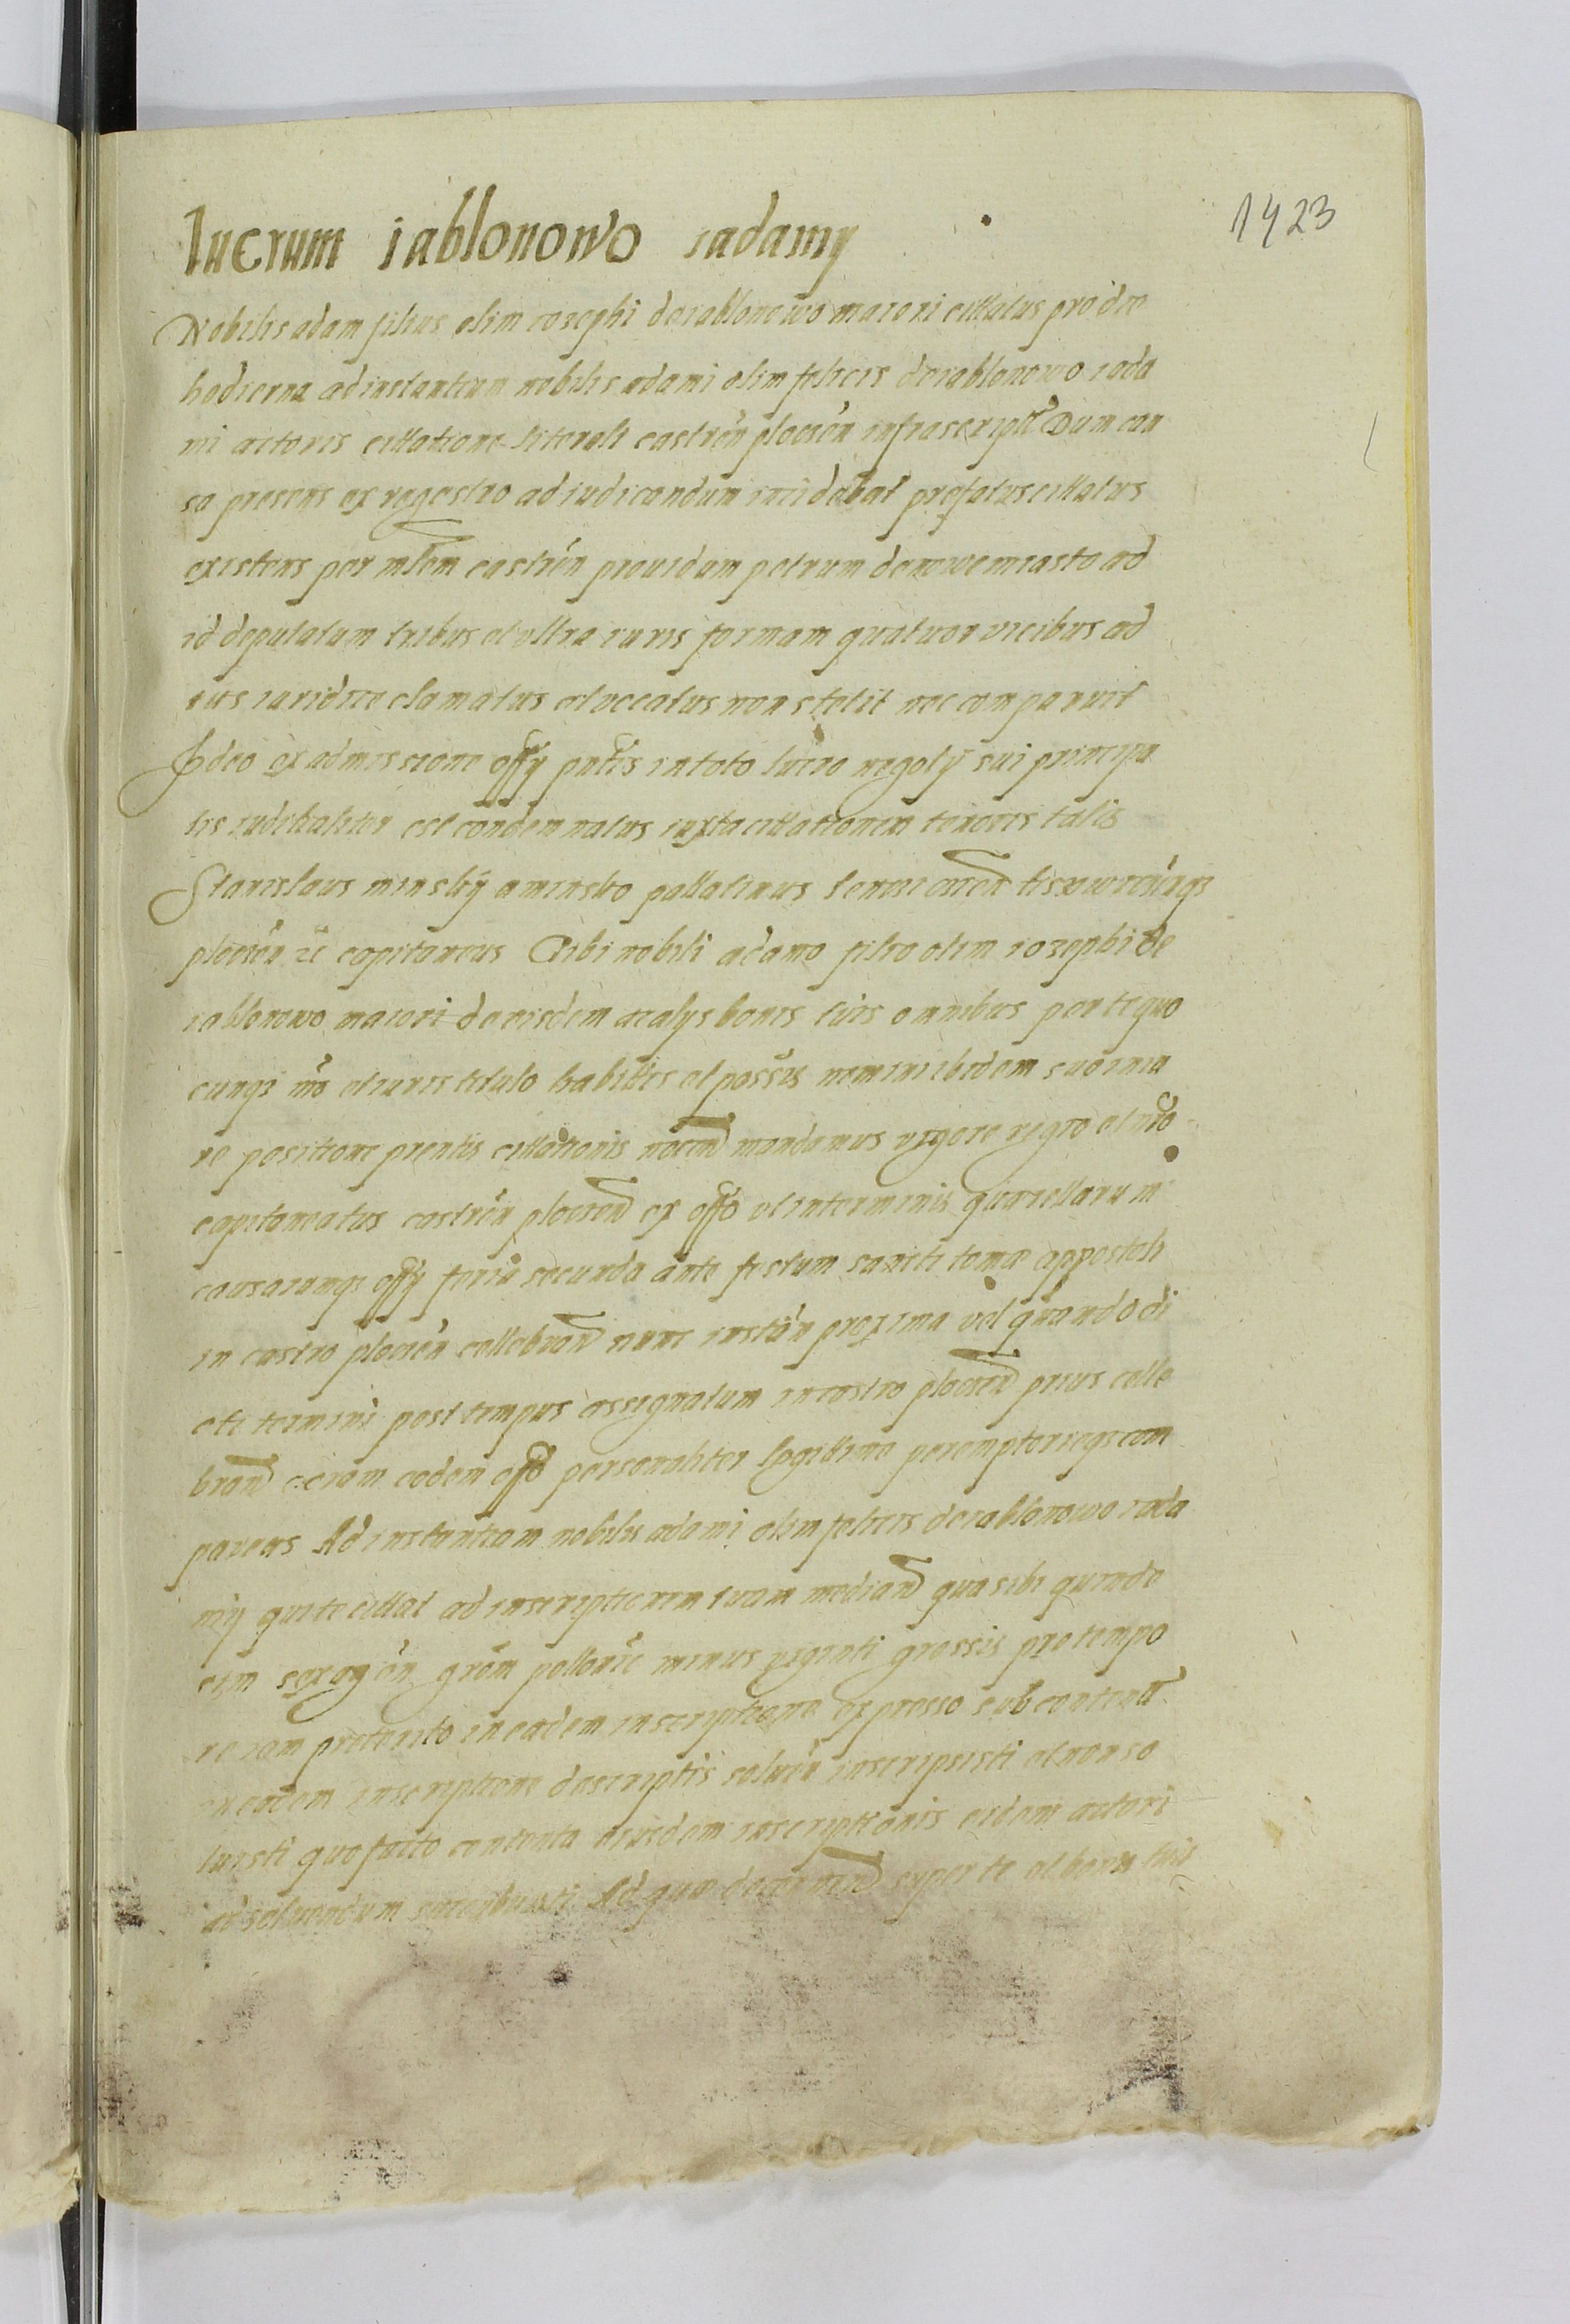 1423
lucrum iablonowo iadamy
Nobilis adam filius olim iozephi de iablonowo maiori cittatus pro die
hodierna ad instantiam nobilis adami olim felicis de iablonowo iada
mi actoris cittatione literali castren plocen infrascripta Dum cau
sa presens ex regestro ad iudicandum incidebat prefatus cittatus
existens per mlem castren prouidum petrum de nowemiasto ad
id deputatum tribus et vltra iuris formam quatuor vicibus ad
ius iuridice clamatus et vocatus non stetit nec comparuit
Ideo ex admissione offy pntis in toto lucro negoly sui principa
lis iudicialiter est condemnatus iuxta cittationem tenoris talis
Stanislaus minsky a minsko pallatinus lencicien liswwicunqz
plocen zc capitaneus Tibi nobili adamo filio olim iozephi de
iablonowo maiori de eisdem acalys bonis tuis omnibus per te quo
cunqz mo et iuris titulo habittis et possis nemini ibidem suo ima
re positione prentis cittationis nocen mandamus vigore regio et nro
capitaneatus castren plocen ex offo vt in terminis quaerellarum
causarumqz offy feria secunda ante festum sancti tomae appostoli
in castro plocen cellebran nunc instan proxima vel quando di
cti termini post tempus assignatum in castro plocen prius celle
bran coram eodem offo personaliter legittime peremptorieqz com
pareas Ad instantiam nobilis adami olim felicis de iablonowo iada
my qui te cittat ad inscriptionem tuam median qua sibi quinde
cim sexagen grom pollonic minus viginti grossis pro tempo
re iam preterito in eadem inscriptione expresso sub contenta
in eadem inscriptione descriptis soluen inscripsisti et non so
luisti quo facto contenta eiusdem inscriptionis eidem actori
ad soluendum succubuisti Ad quae decernen super te et bonis tuis